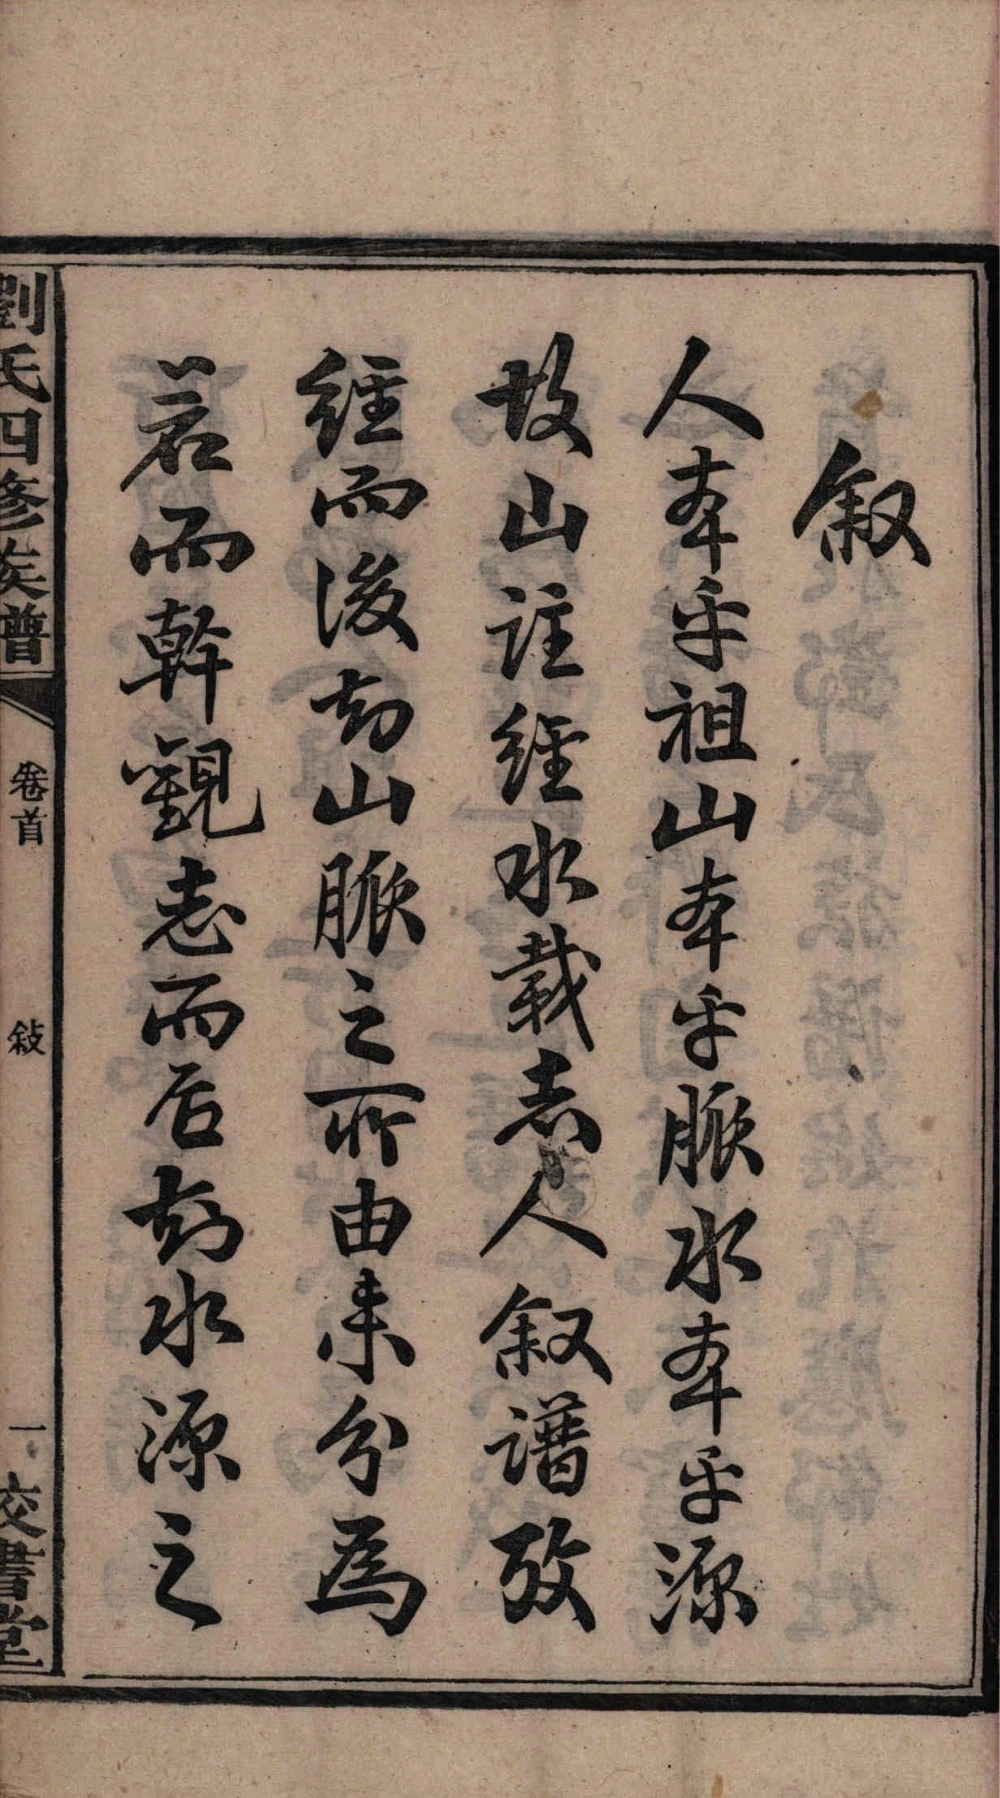 叙
人本乎祖山本乎脈水本乎源
故山註經水載志人叙譜攷
經而後知山脈之所由来分為
若而幹觀志而后知水源之
劉氏四修族譜
卷首
敍
一
校書堂